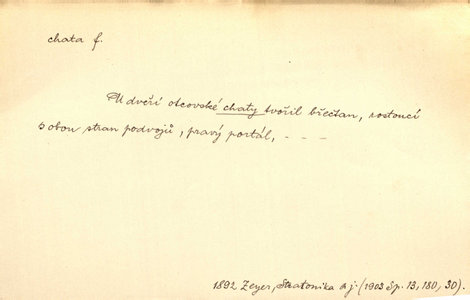 chata f.
U dveří otcovské chaty tvořil břečťan, rostoucí
s obou stran podvojů, pravý portál, - - -
1892 Zeyer, Stratonika a j. (1903 Sp. 13, 180, 30).